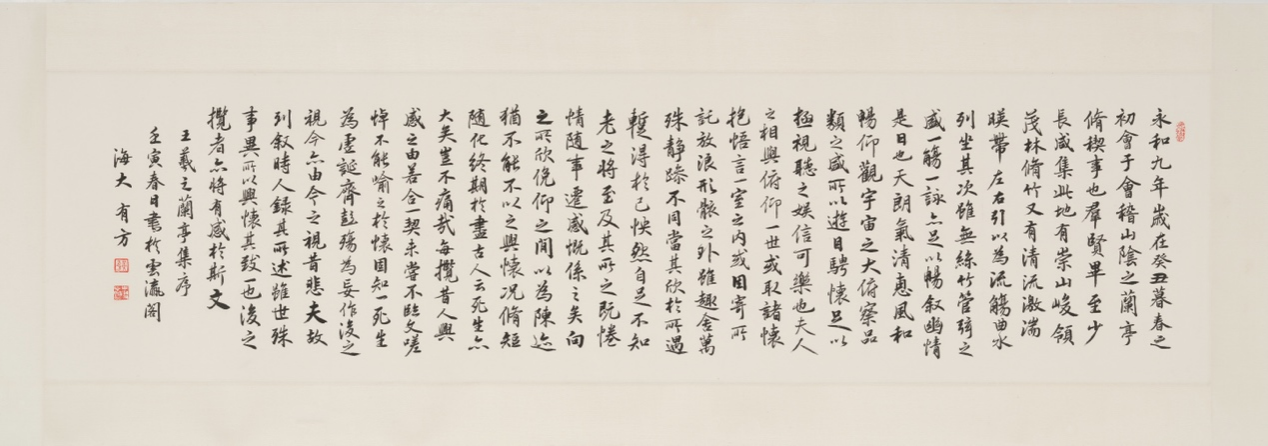 永和九年歲在癸丑暮春之
初會于會稽山陰之蘭亭
脩稧事也羣賢畢至少
長咸集此地有崇山峻領
茂林脩竹又有清流激湍
暎帶左右引以為流觴曲水
列坐其次雖無絲竹管弦之
盛一觴一詠亦足以暢叙幽情
是日也天朗氣清惠風和
暢仰觀宇宙之大俯察品
類之盛所以遊目騁懷足以
極視聽之娛信可樂也夫人
之相與俯仰一世或取諸懷
抱悟言一室之内或因寄所
託放浪形骸之外雖趣舍萬
殊静躁不同當其欣於所遇
蹔得於己怏然自足不知
老之將至及其所之既惓
情隨事遷感慨係之矣向
之所欣俛仰之間以為陳迹
猶不能不以之興懷況脩短
隨化終期於盡古人云死生亦
大矣豈不痛哉每攬昔人興
感之由若合一契未嘗不臨文嗟
悼不能喻之於懷固知一死生
為虛誕齊彭殤為妄作後之
視今亦由今之視昔悲夫故
列叙時人錄其所述雖世殊
事異所以興懷其致一也後之
攬者亦將有感於斯文
王羲之蘭亭集序
壬寅春日書於雲瀛閣
海大有方